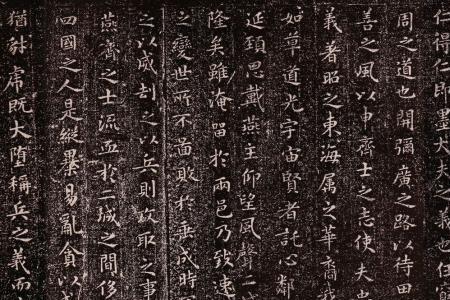 仁得仁即墨大夫之義也任窮
周之道也開彌廣之路以待田
善之風以申齊士之志使夫忠
義著昭之東海属之華裔我
如草道光宇宙賢者託心鄰
延頚思戴燕主仰望風聲二
隆矣雖淹留於兩邑乃致速
之變世所不啚敗於垂成時
之以威刦之以兵則攻取之事
燕齊之士流血於二城之間侈
四國之人是縱暴易亂貪以成
猶豺虎既大墮稱兵之義而